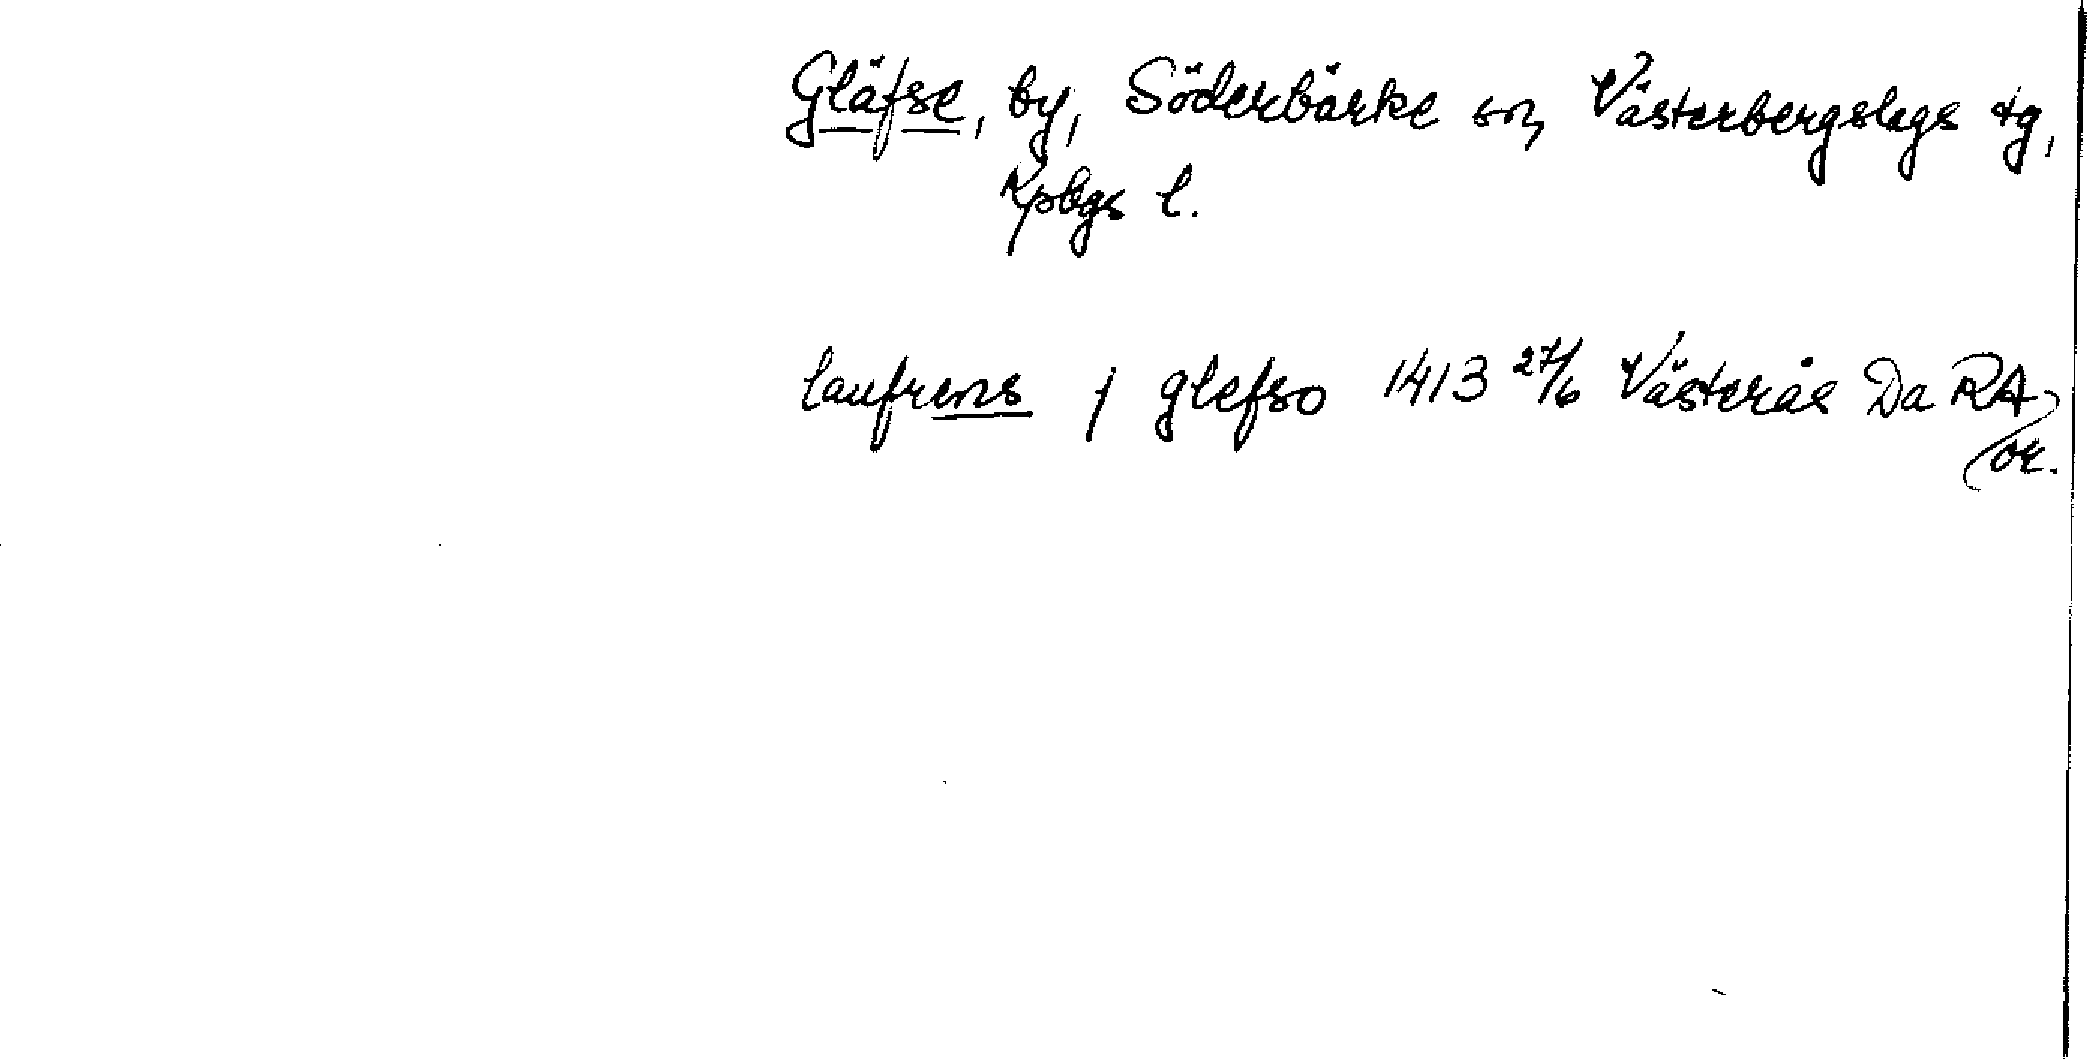 Gläfse, by, Söderbärke sn, Västerbergslags tg,
Kpbgs l.
laufrens j glefso 1413 27/6 Västerås Da RA
or.